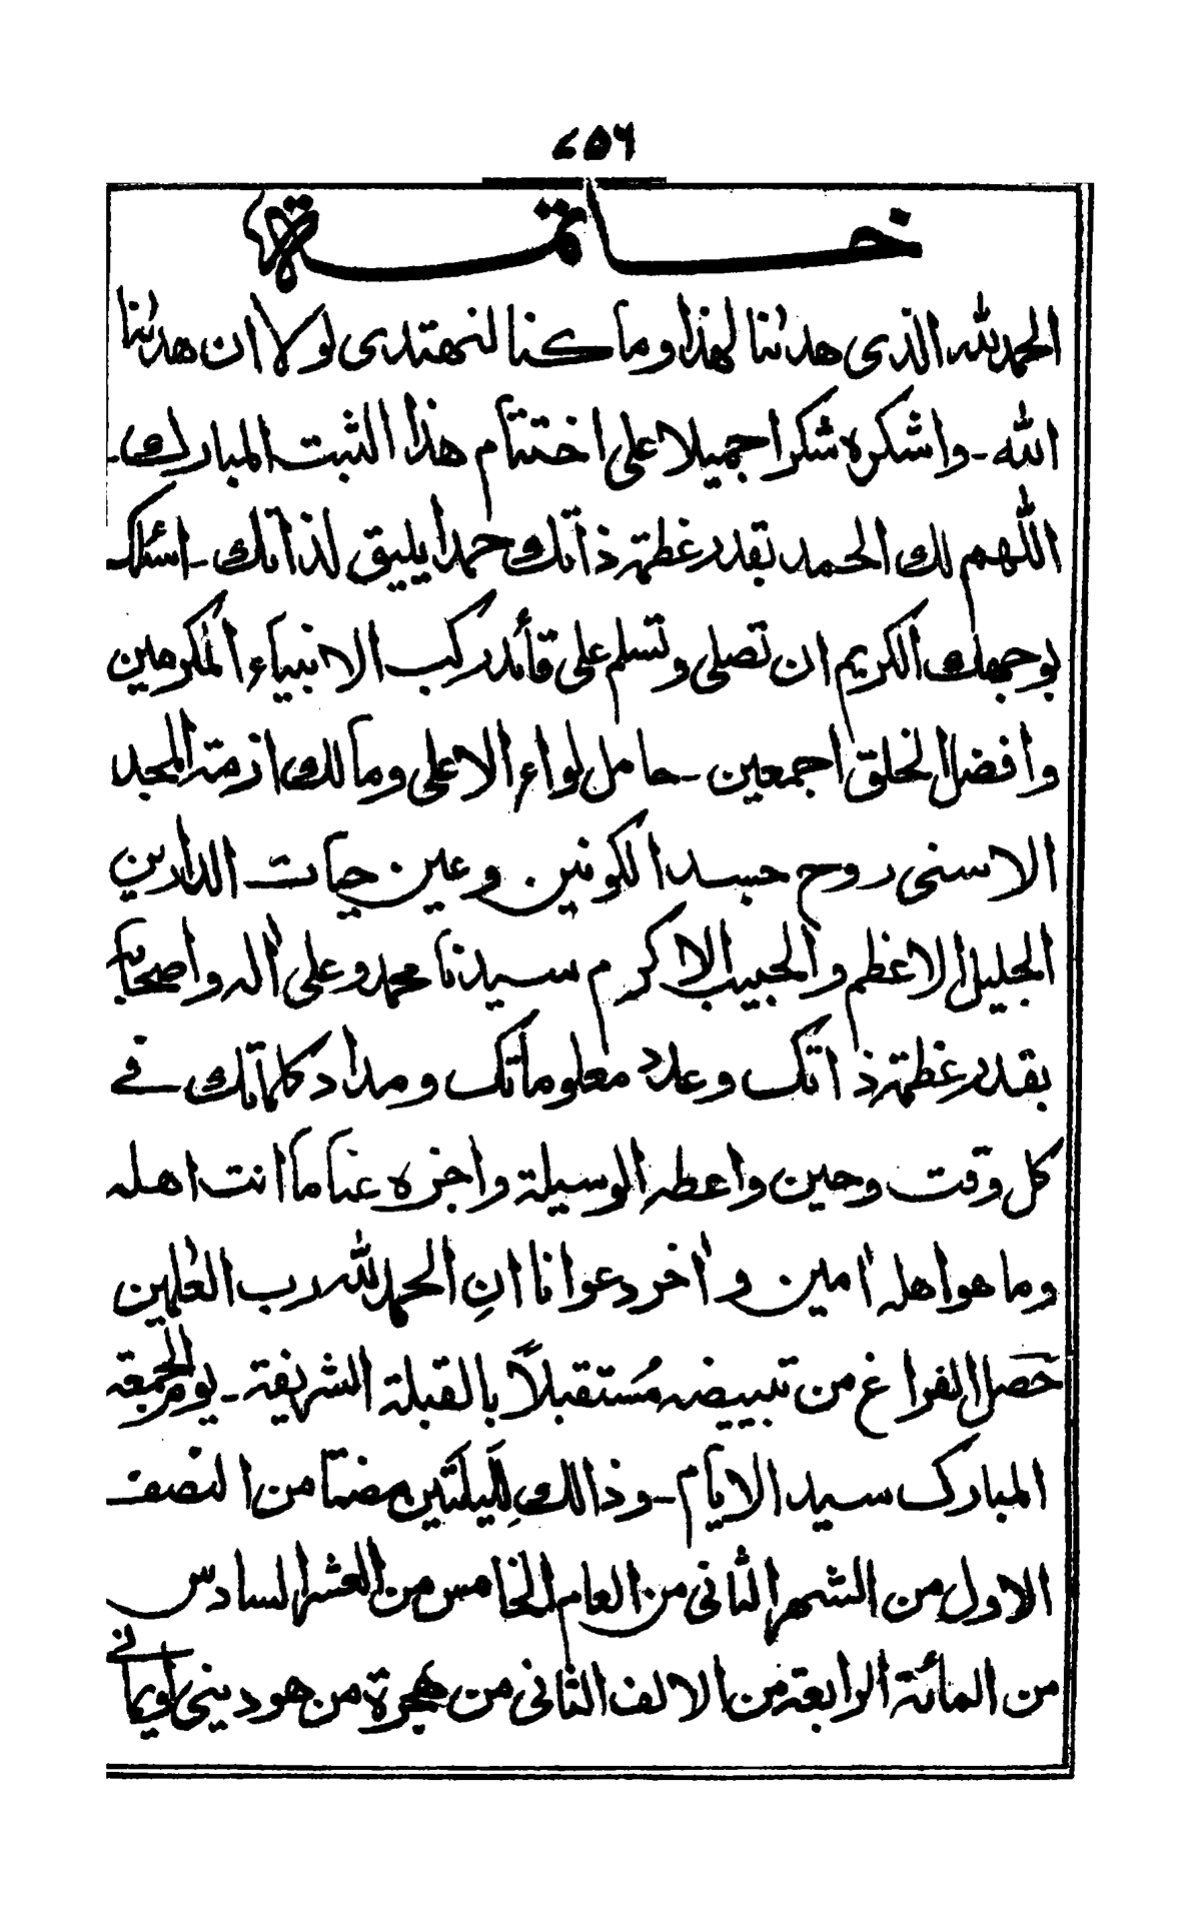 ٤٥٦
خاتمة
الحمد لله الذى هدٰىنا لهذا وما كنا لنهتدى لولا ان هدٰىنا
الله - واشكره شكرا جميلا على اختتام هذا الثبت المبارك -
اللّٰهم لك الحمد بقدر عظمة ذاتك حمدا يليق لذاتك - اسئلك
بوجهك الكريم ان تصلى وتسلم على قائد ركب الانبياء المكرمين
وافضل الخلق اجمعين - حامل لواء الاعلى ومالك ازمة المجد
الاسنى روح جسد الكونين وعين حيات الدارين
الجليل الاعظم والحبيب الاكرم سيدنا محمد وعلى اٰله واصحابه
بقدر عظمة ذاتك وعدد معلوماتك ومداد كلماتك فے
كل وقت وحين واعطه الوسيلة واجزه عنا ما انت اهله
وما هو اهله اٰمين واٰخر دعوانا انِ الحمد لله رب العٰلمين
حَصل الفراغ من تبييضه مُستقبلاً بالقبلة الشريفة - يوم الجمعة
المبارك سيد الايام - وذالك لِلَيلَتين مضتا من النصف
الاول من الشهر الثانى من العام الخامس من العشر السادس
من المائة الرابعة من الالف الثانى من هجرة من هو دينى وايمانے